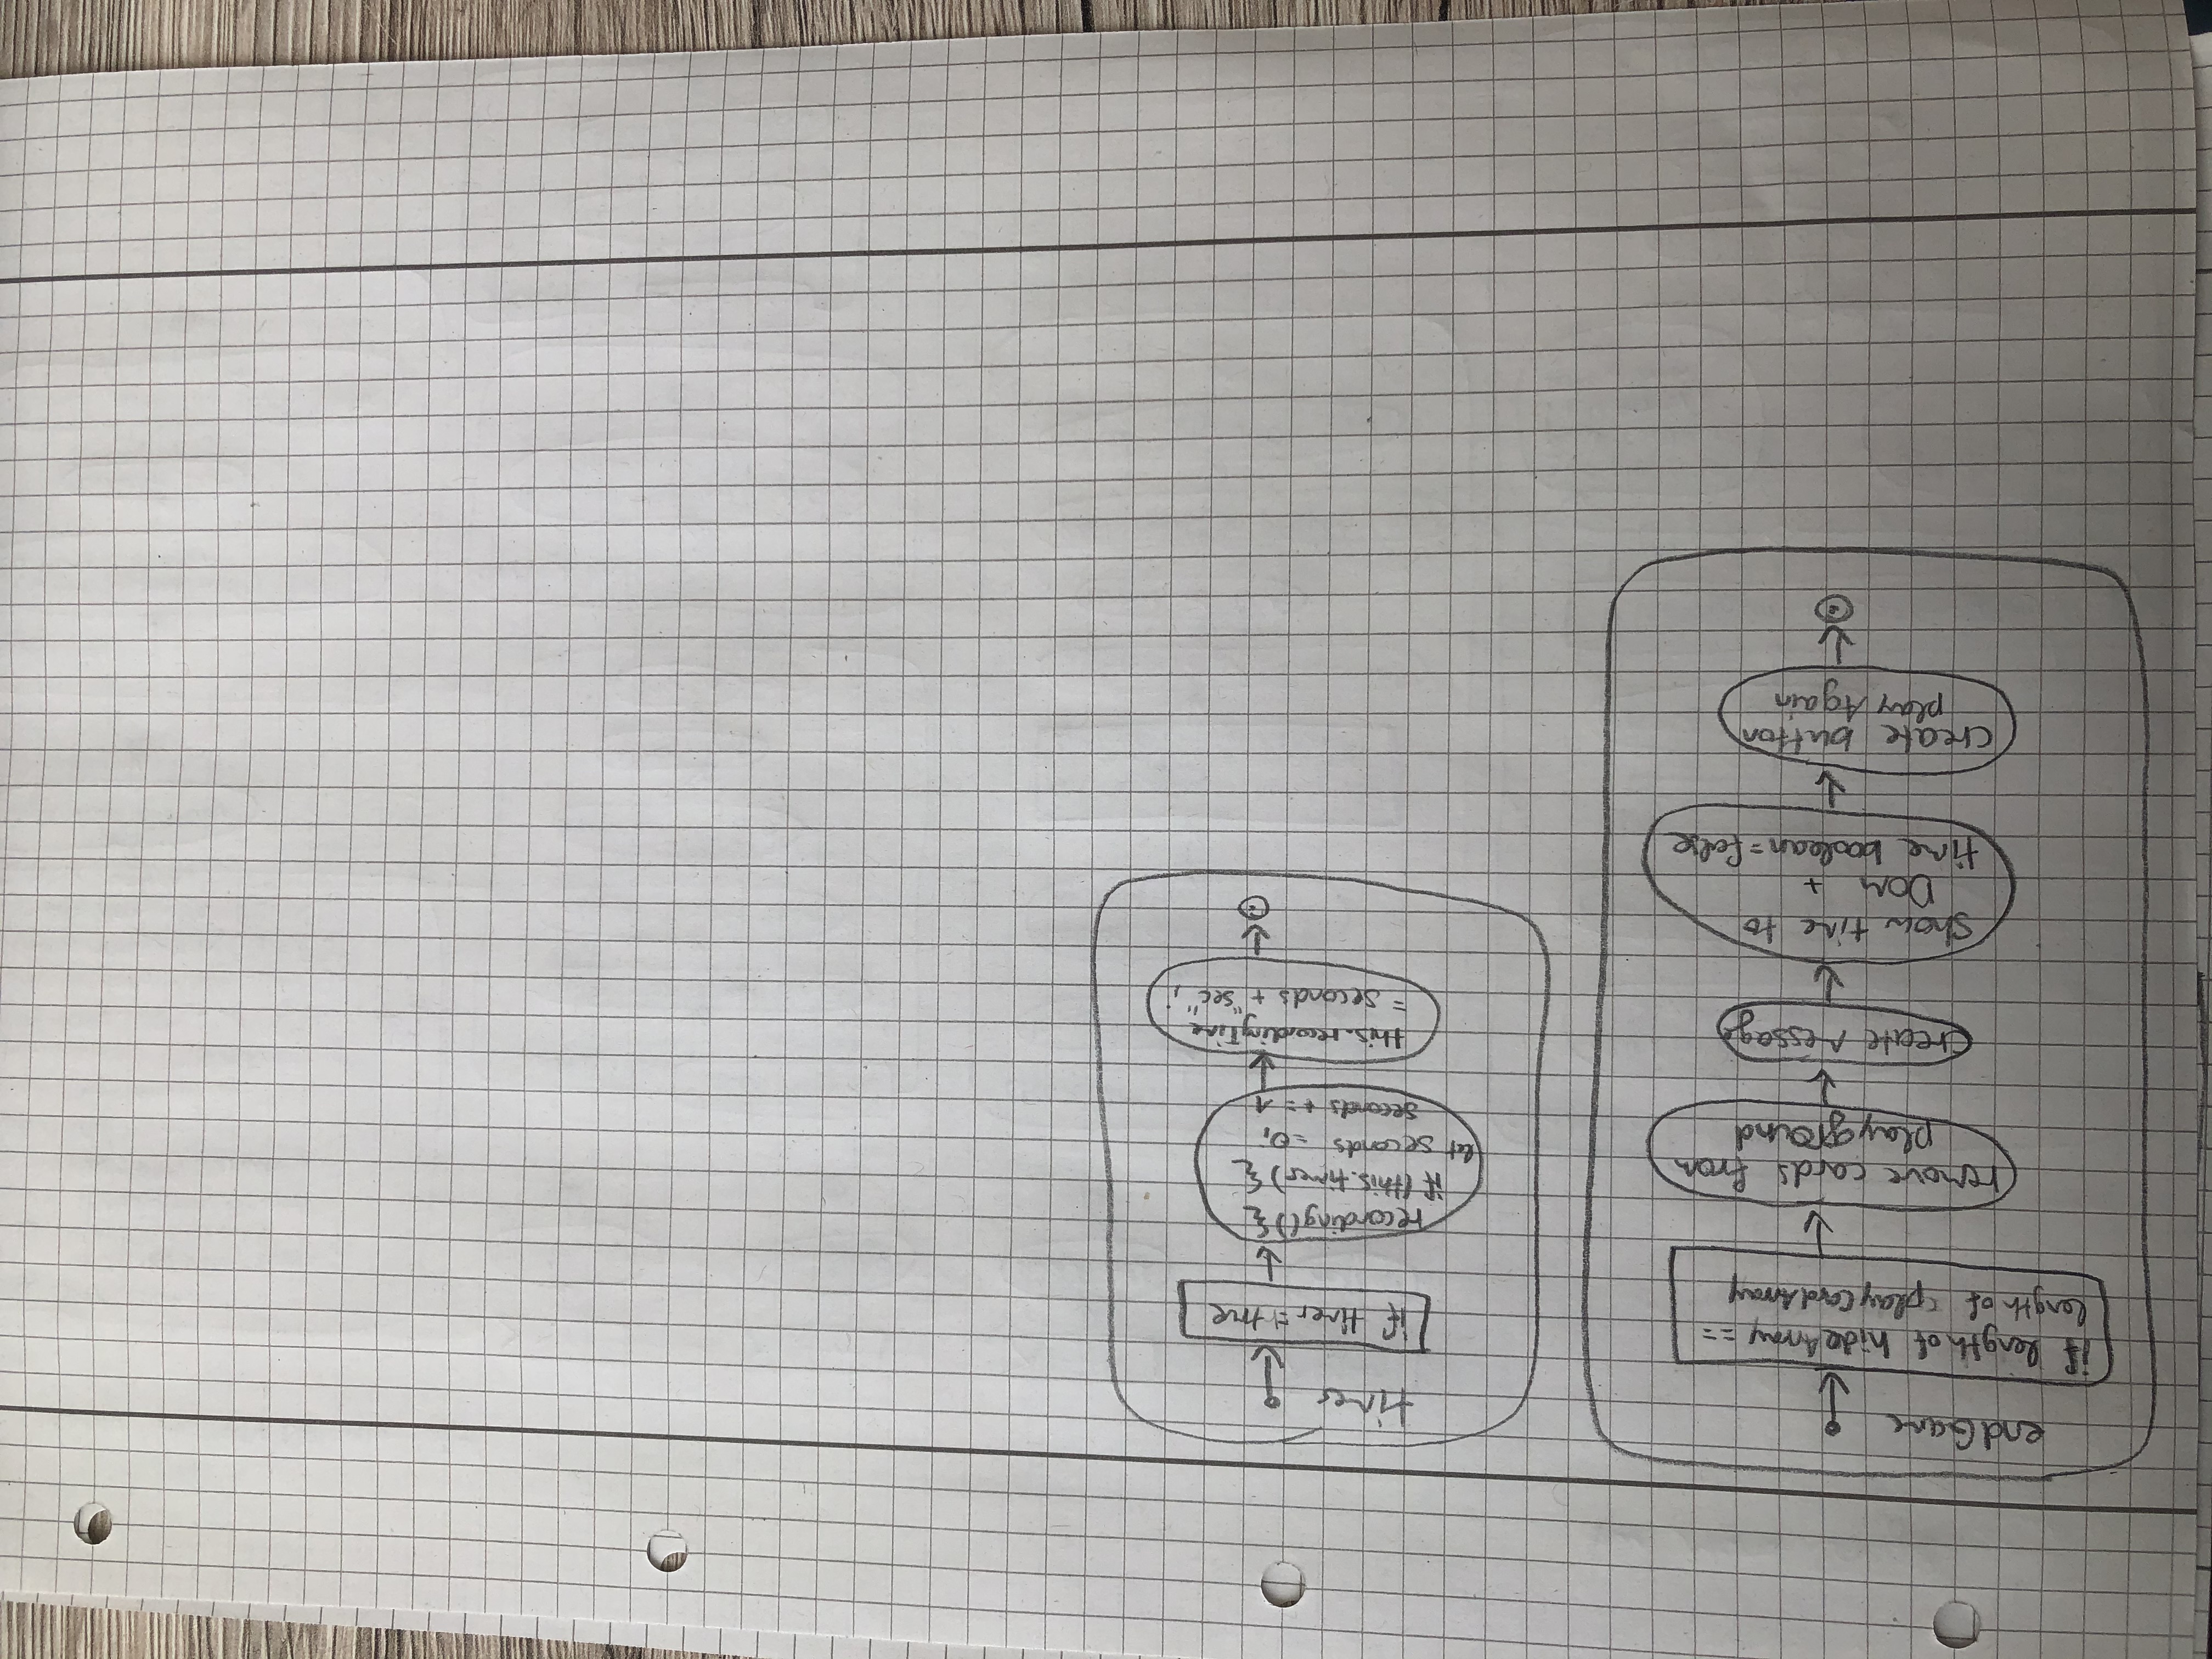 endGame
if length of hideArray ==
length of playCardArray
remove cards from
playground
Create Message
Show time to
DOM +
time boolean = false
Create button
play Again
timer
if timer = true
recording(){
if (this.timer){
let seconds = 0;
seconds += 1
this.recordingTime
= seconds + "sec";